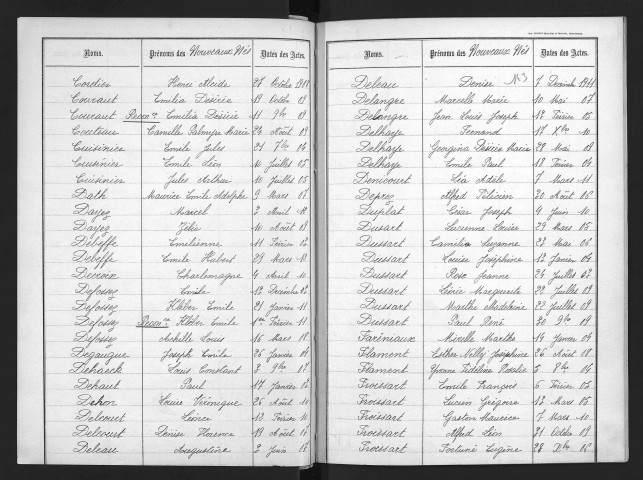 Noms. Prénoms des Nouveaux Nés Dates des Actes.
Cordier Henri Alcide 27 Octobre
Couraut Emilia Désirée 19 Octobre 09
Couraut Reconce Emilia Désirée 11 9bre 09
Couteau Camille Palmyre Marie 24 Août 09
Cuisinier Emile Jules 21 7bre 04
Cusinier Emile Léon 10 Juillet 05
Cuisinier Jules Arthur 10 Juillet 05
Dath Maurice Emile Adolphe 9 Mars
Dayez Marcel 2 Avril
Dayez Zélie 10 Août
Debeffe Emilienne 11 Février
Debeffe Emile Hubert 29 Mars
Decroix Charlemagne 4 Avril 10
Defossez Emile 13 Décembre
Defossez Kléber Emile 21 Janvier 11
Defossez Reconce Kléber Emile 1er Février 11
Defossez Achille Louis 16 Mars
Degauque Joseph Emile 25 Janvier
Dehaeck Louis Constant 3 9bre
Dehaut Paul 17 Janvier
Dehon Louise Véronique 25 Août
Delcourt Léonce 12 Février 10
Delcourt Denise Florence 19 Août
Deleau Augustine 2 Juin
Noms. Prénoms des Nouveaux Nés Dates des Actes.
Deleau Denise N°3 7 Décembre
Delangre Marcelle Marie 10 Mai 07
Delangre Jean Louis Joseph 18 Février 05
Delhaye Fernand 17 Xbre 10
Delhaye Georgina Désirée Marie 28 Mai 09
Delhaye Emile Paul 18 Février 04
Denicourt Léa Adèle 7 Mars 11
Deprez Alfred Félicien 30 Août 06
Duplat César Joseph 9 Juin 10
Dusart Lucienne Louise 29 Mars 05
Dussart Camélia Suzanne 22 Mars 06
Dussart Louise Joséphine 12 Janvier 04
Dussart Rose Jeanne 24 Juillet 07
Dussart Léonie Marguerite 22 Juillet 09
Dussart Marthe Madeleine 22 Juillet 09
Dussart Paul René 30 9bre 09
Faréniaux Mireille Marthe 14 Janvier 04
Flament Esther Nelly Joséphine 26 Août 08
Flament Yvonne 5 8bre 04
Froissart Emile François 6 Février 05
Froissart Lucien Grégoire 13 Mars 05
Froissart Gaston Maurice 7 Mars 10
Froissart Alfred Léon 21 Octobre 09
Froissart Fortuné Eugène 28